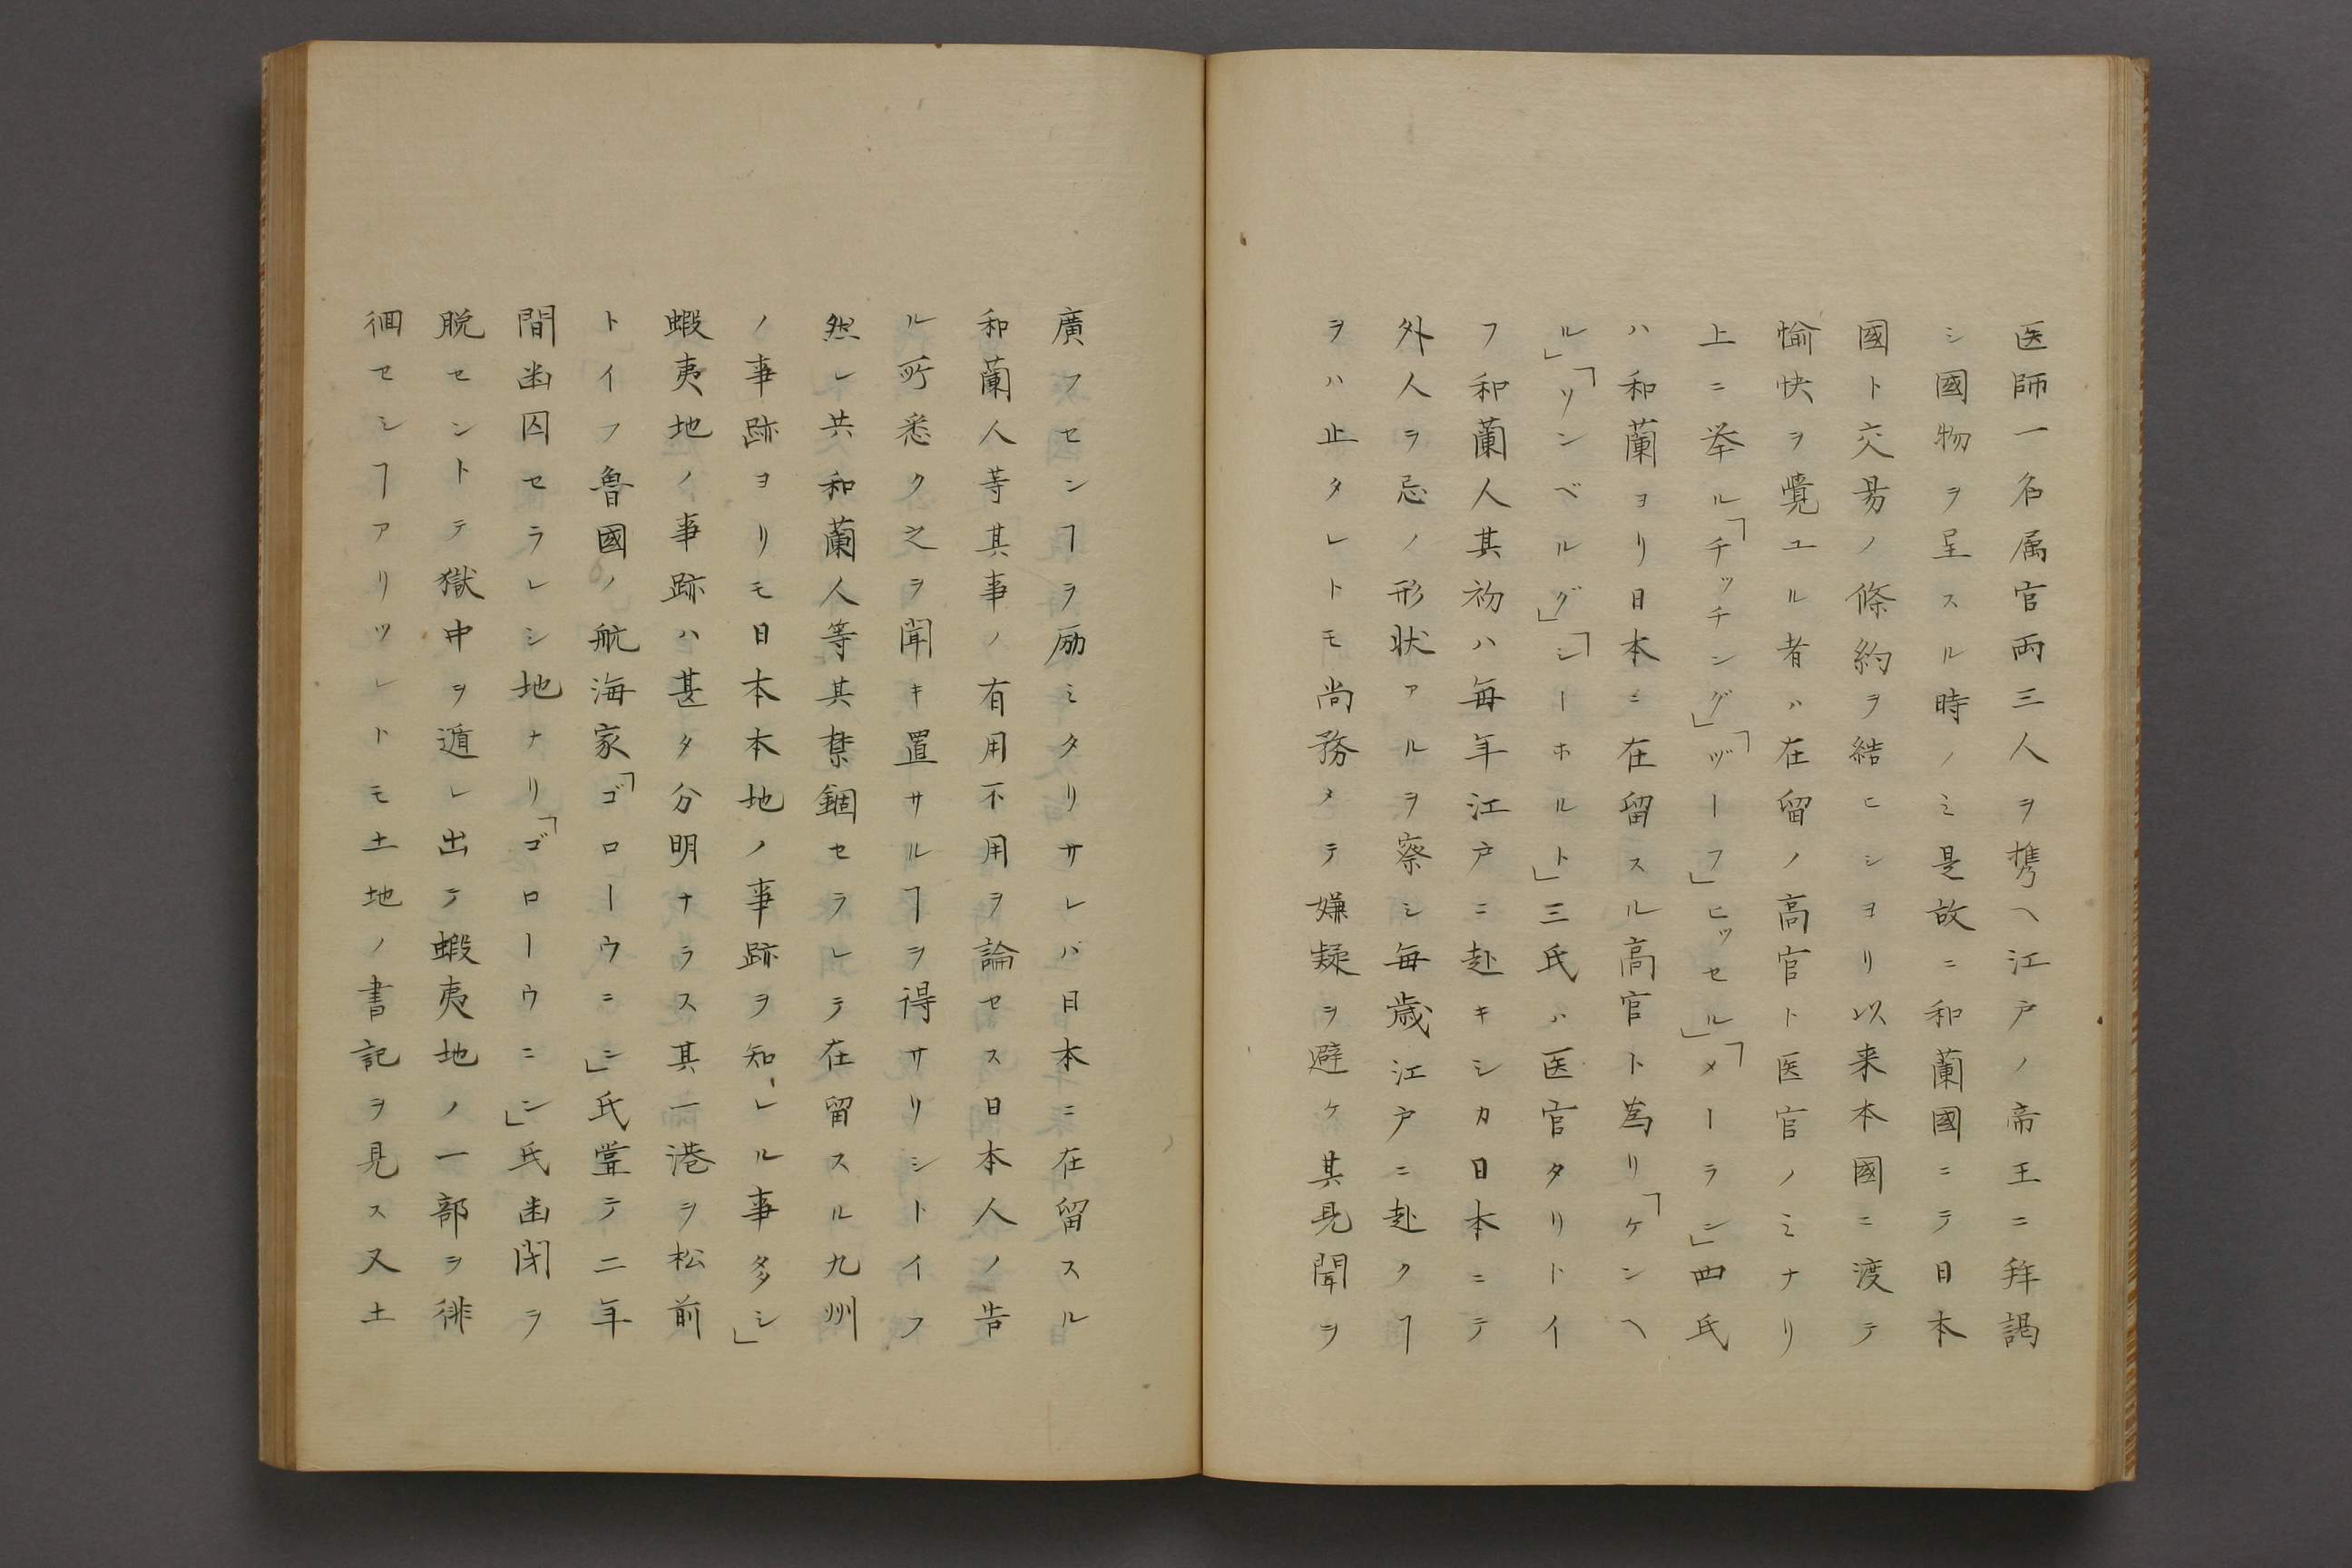 医師一名属官両三人ヲ携ヘ江戸ノ帝王ニ拜謁
シ國物ヲ呈スル時ノミ是故ニ和蘭國ニテ日本
國ト交易ノ條約ヲ結ヒシヨリ以来本國ニ渡テ
愉快ヲ覺ユル者ハ在留ノ高官ト医官ノミナリ
上ニ挙ル「チッチング」「ヅーフ」ヒッセル」「メーラン」四氏
ハ和蘭ヨリ日本ニ在留スル高官ト為リ「ケンヘ
ル」「ツンベルグ」「シーホルト」三氏ハ医官タリトイ
フ和蘭人其初ハ毎年江戸ニ赴キシカ日本ニテ
外人ヲ忌ノ形状アルヲ察シ毎歳江戸ニ赴クヿ
ヲハ止タレトモ尚務メテ嫌疑ヲ避ケ其見聞ヲ
廣フセンヿヲ励ミタリサレバ日本ニ在留スル
和蘭人等其事ノ有用不用ヲ論セス日本人ノ告
ル所悉ク之ヲ聞キ置サルヿヲ得サリシトイフ
然レ共和蘭人等其禁錮セラレテ在留スル九州
ノ事跡ヨリモ日本本地ノ事跡ヲ知レル事多シ」
蝦夷地ノ事跡ハ甚タ分明ナラス其一港ヲ松前
トイフ魯國ノ航海家「ゴローウニン」氏嘗テ二年
間幽囚セラレシ地ナリ「ゴローウニン」氏幽閉ヲ
脱セントテ獄中ヲ遁レ出テ蝦夷地ノ一部ヲ徘
徊セシヿアリツレトモ土地ノ書記ヲ見ス又土